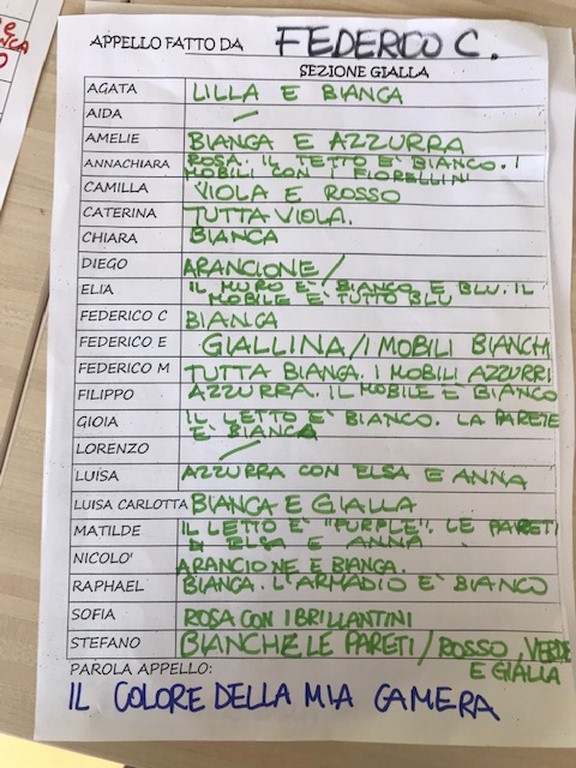 APPELLO FATTO DA FEDERICO C.
SEZIONE GIALLA
AGATA LILLA E BIANCA
AIDA /
AMELIE BIANCA E AZZURRA
ANNACHIARA ROSA. IL TETTO E' BIANCO. I
MOBILI CON I FIORELLINI
CAMILLA VIOLA E ROSSO
CATERINA TUTTA VIOLA.
CHIARA BIANCA
DIEGO ARANCIONE /
ELIA IL MURO E' BIANCO E BLU. IL
MOBILE E' TUTTO BLU
FEDERICO C BIANCA
FEDERICO E GIALLINA/I MOBILI BIANCHI
FEDERICO M TUTTA BIANCA. I MOBILI AZZURRI
FILIPPO AZZURRA. IL MOBILE E' BIANCO
GIOIA IL LETTO E' BIANCO. LA PARETE
E' BIANCA
LORENZO /
LUISA AZZURRA CON ELSA E ANNA
LUISA CARLOTTA BIANCA E GIALLA
MATILDE IL LETTO E' "PURPLE". LE PARETI
ELSA E ANNA
NICOLO' ARANCIONE E BIANCA.
RAPHAEL BIANCA. L'ARMADIO E' BIANCO
SOFIA ROSA CON I BRILLANTINI
STEFANO BIANCHE LE PARETI / ROSSO, VERDE
E GIALLA
PAROLA APPELLO:
IL COLORE DELLA MIA CAMERA